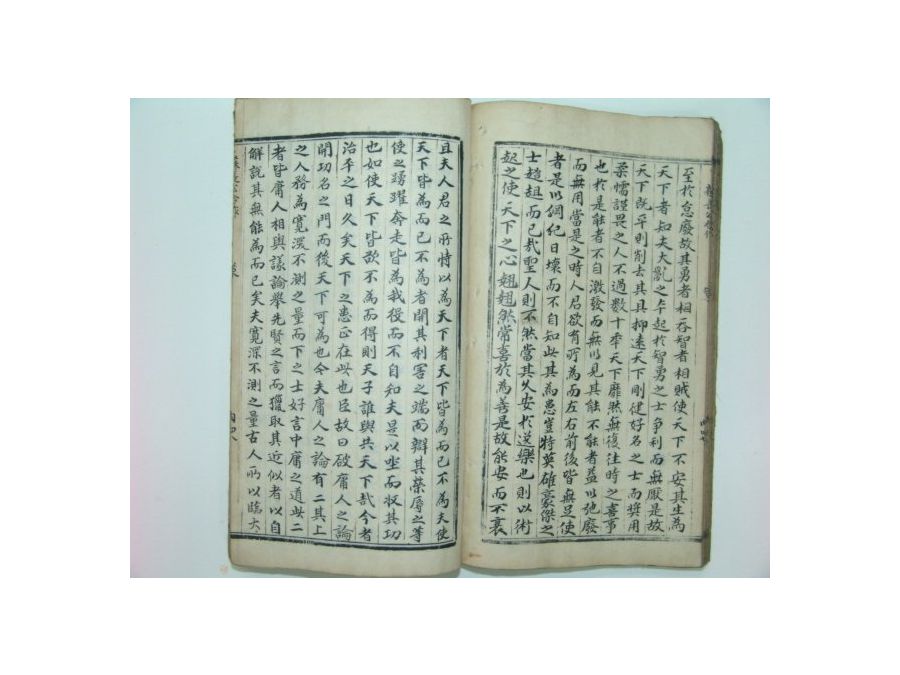 至於怠廢故其勇者相吞智者相賊使天下不安其生為
天下者知夫大亂之本起於智勇之士爭利而無厭是故
天下既平則削去其具抑遠天下剛健好名之士而奬用
柔懦謹畏之人不過數十年天下靡然無復往時之喜事
也於是能者不自激發而無以見其能不能者益以弛廢
而無用當是之時人君欲有所為而左右前後皆無足使
者是以綱紀日壞而不自知此其為患豈特英雄豪傑之
士趑趄而已哉聖人則不然當其久安於逸樂也則以術
起之使天下之心翹翹然常喜於為善是故能安而不衰
且夫人君之所恃以為天下者天下皆為而已不為夫使
天下皆為而已不為者開其利害之端而辯其榮辱之等
使之踴躍奔走皆為我役而不自知夫是以坐而收其功
也如使天下皆欲不為而得則天子誰與共天下哉今者
治平之日久矣天下之患正在此也臣故曰破庸人之論
開功名之門而後天下可為也今夫庸人之論有二其上
之人務為寬深不測之量而下之士好言中庸之道此二
者皆庸人相與議論舉先賢之言而獵取其近似者以自
解說其無能為而已矣夫寬深不測之量古人所以臨大